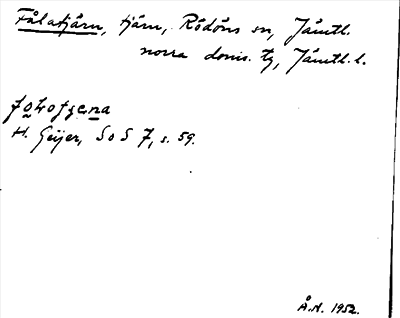 Fålatjärn, tjärn, Rödöns sn, Jämtl.
norra doms. tg, Jämtl. l.
H. Geijer, SoS 7, s. 59.
Å.N. 1952.